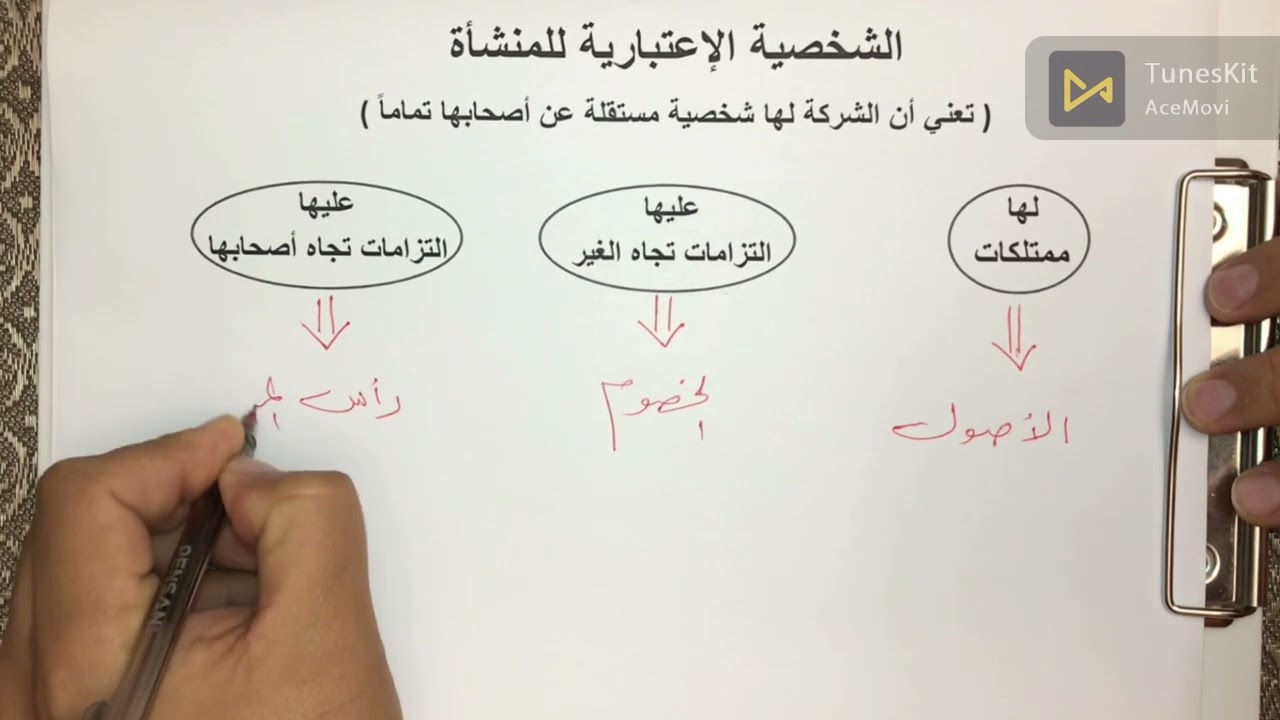 الشخصية الإعتبارية للمنشأة
( تعني أن الشركة لها شخصية مستقلة عن أصحابها تماماً )
لها
ممتلكات
عليها
التزامات تجاه الغير
عليها
التزامات تجاه أصحابها
الأصول
الخصوم
رأس
TunesKit
AceMovi
PENSAN